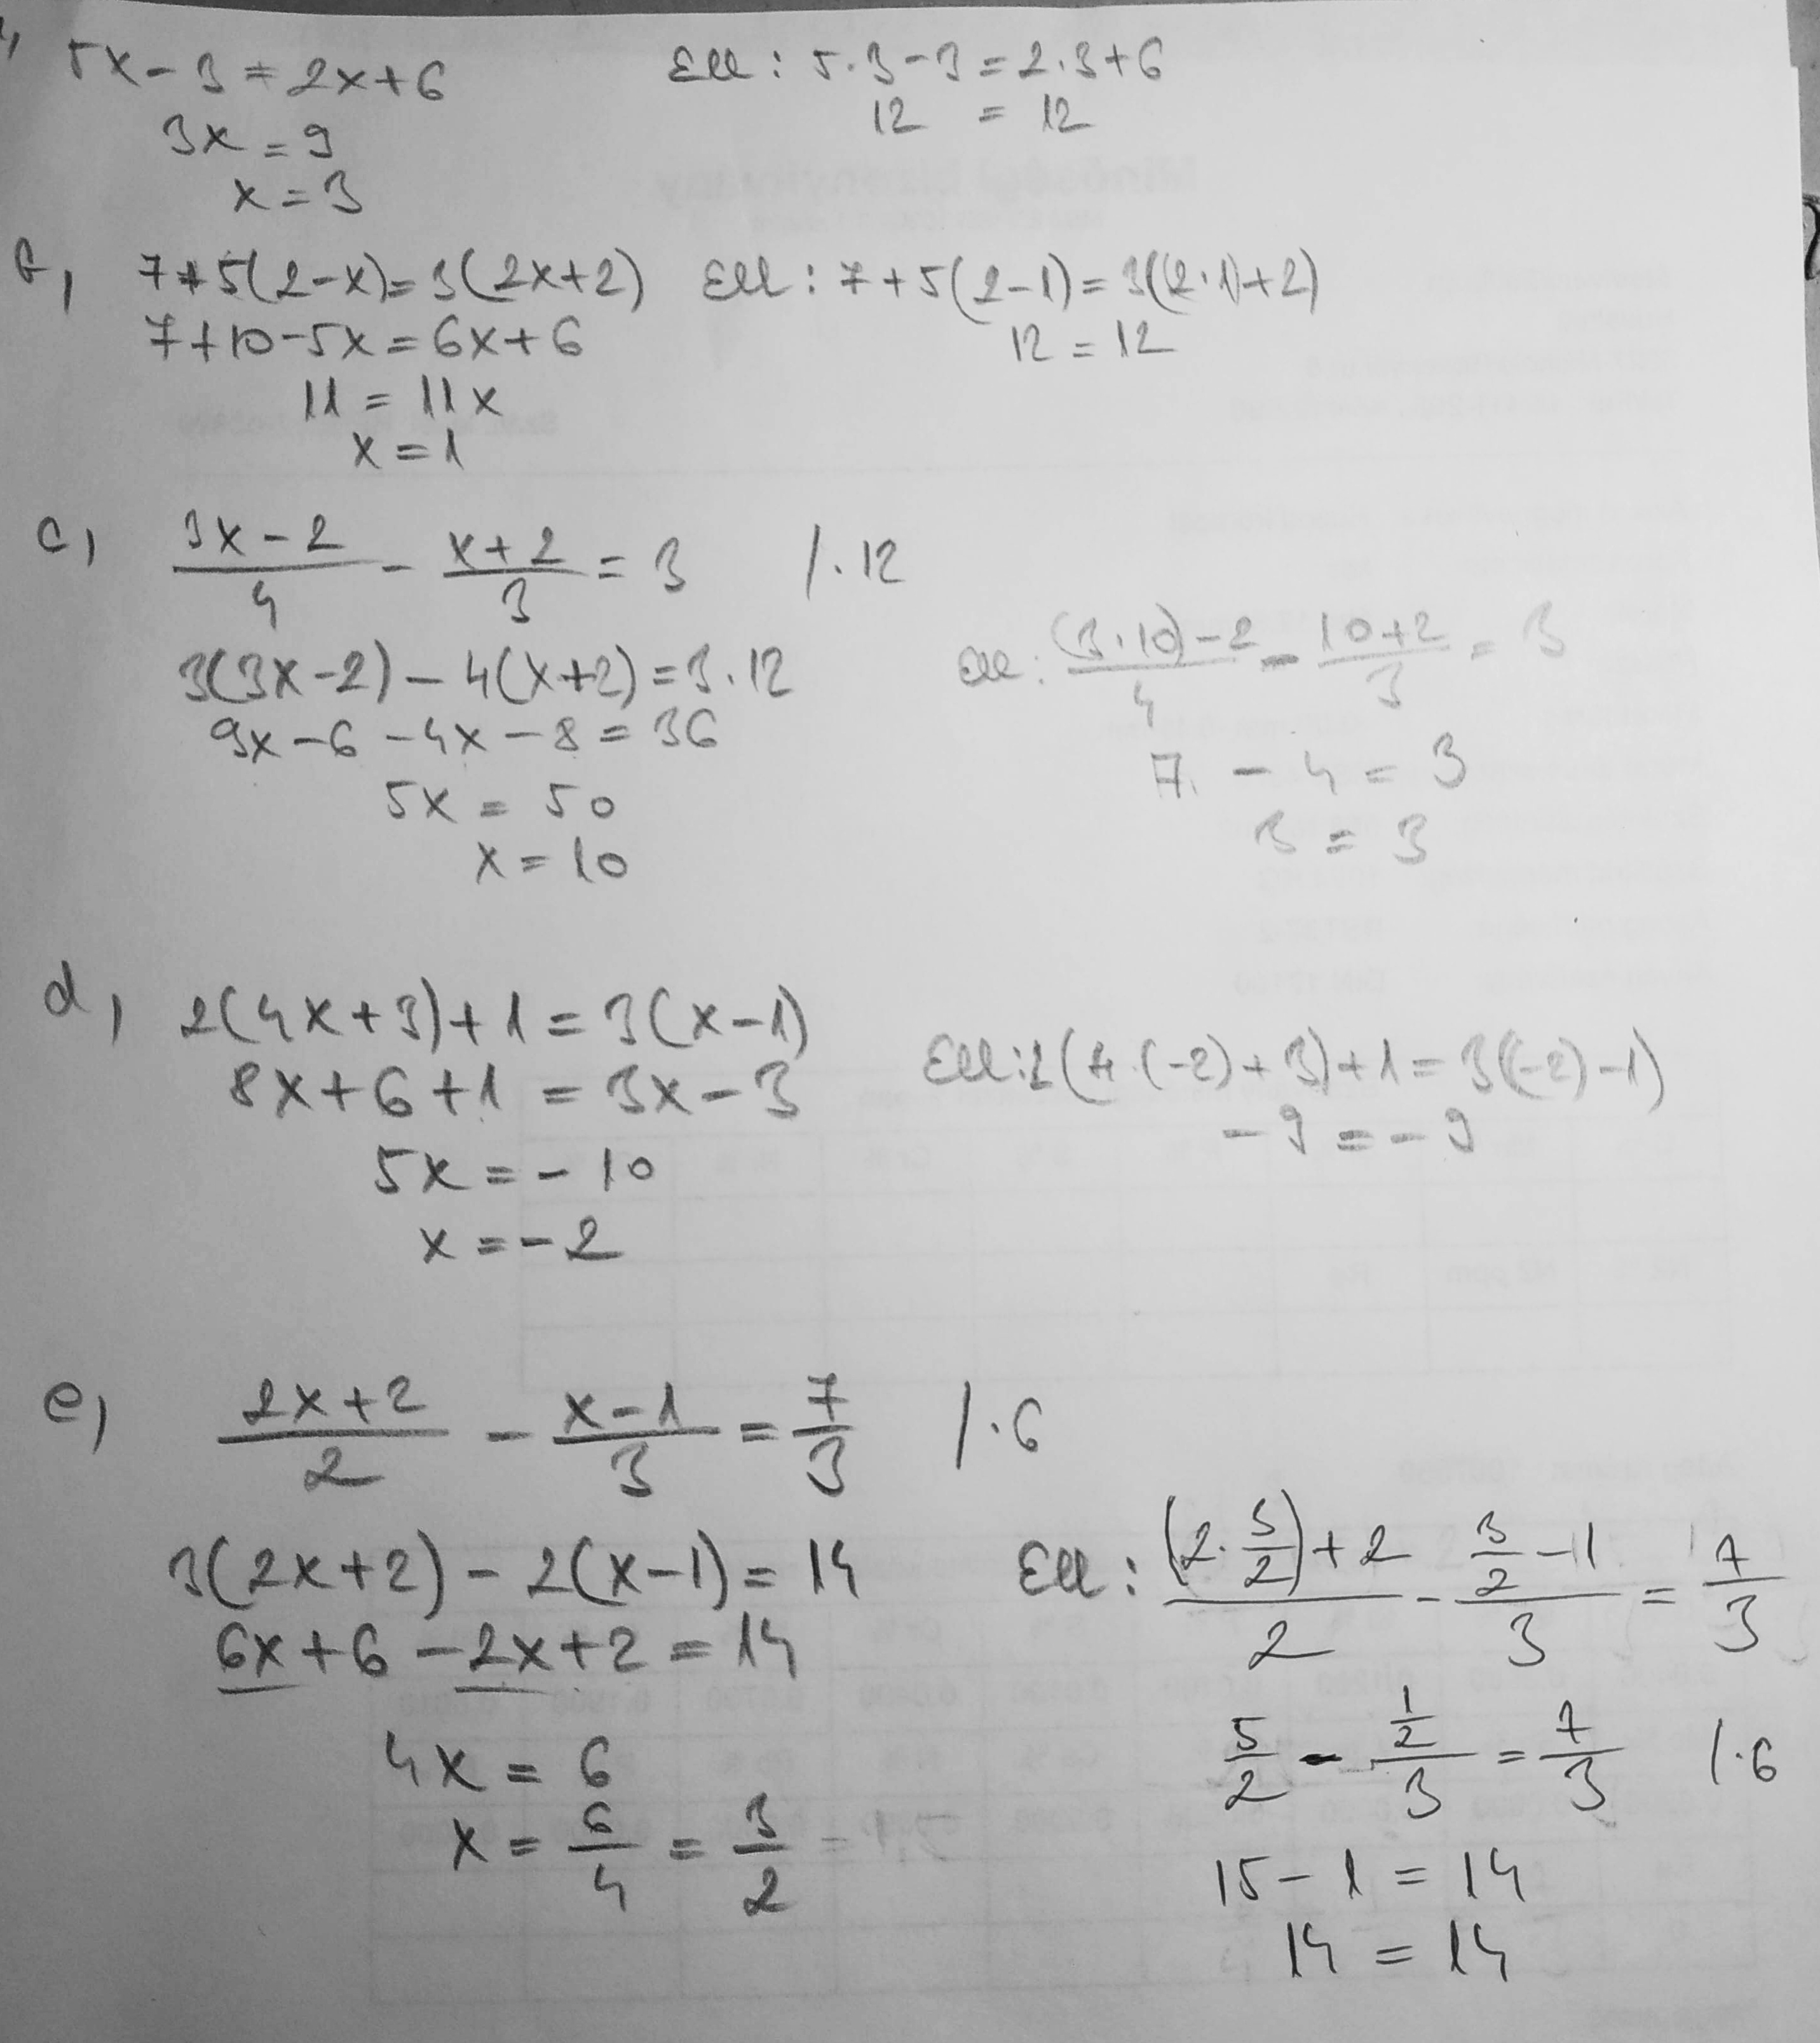 5x-3=2x+6
3x=9
x=3
Ell: 5·3-3=2·3+6
12 = 12
b, 7+5(2-x)=3(2x+2)
7+10-5x=6x+6
11=11x
x=1
Ell: 7+5(2-1)=3((2·1)+2)
12=12
c, (3x-2)/4 - (x+2)/3 = 3 /·12
3(3x-2)-4(x+2)=3·12
9x-6-4x-8=36
5x=50
x=10
Ell: ((3·10)-2)/4 - (10+2)/3 = 3
7 - 4 = 3
3 = 3
d, 2(4x+3)+1=3(x-1)
8x+6+1=3x-3
5x=-10
x=-2
Ell: 2(4·(-2)+3)+1=3((-2)-1)
-9=-9
e, (2x+2)/2 - (x-1)/3 = 7/3 /·6
3(2x+2)-2(x-1)=14
6x+6-2x+2=14
4x=6
x=6/4=3/2=1,5
Ell: ((2·3/2)+2)/2 - (3/2-1)/3 = 7/3
5/2 - (1/2)/3 = 7/3 /·6
15-1=14
14=14